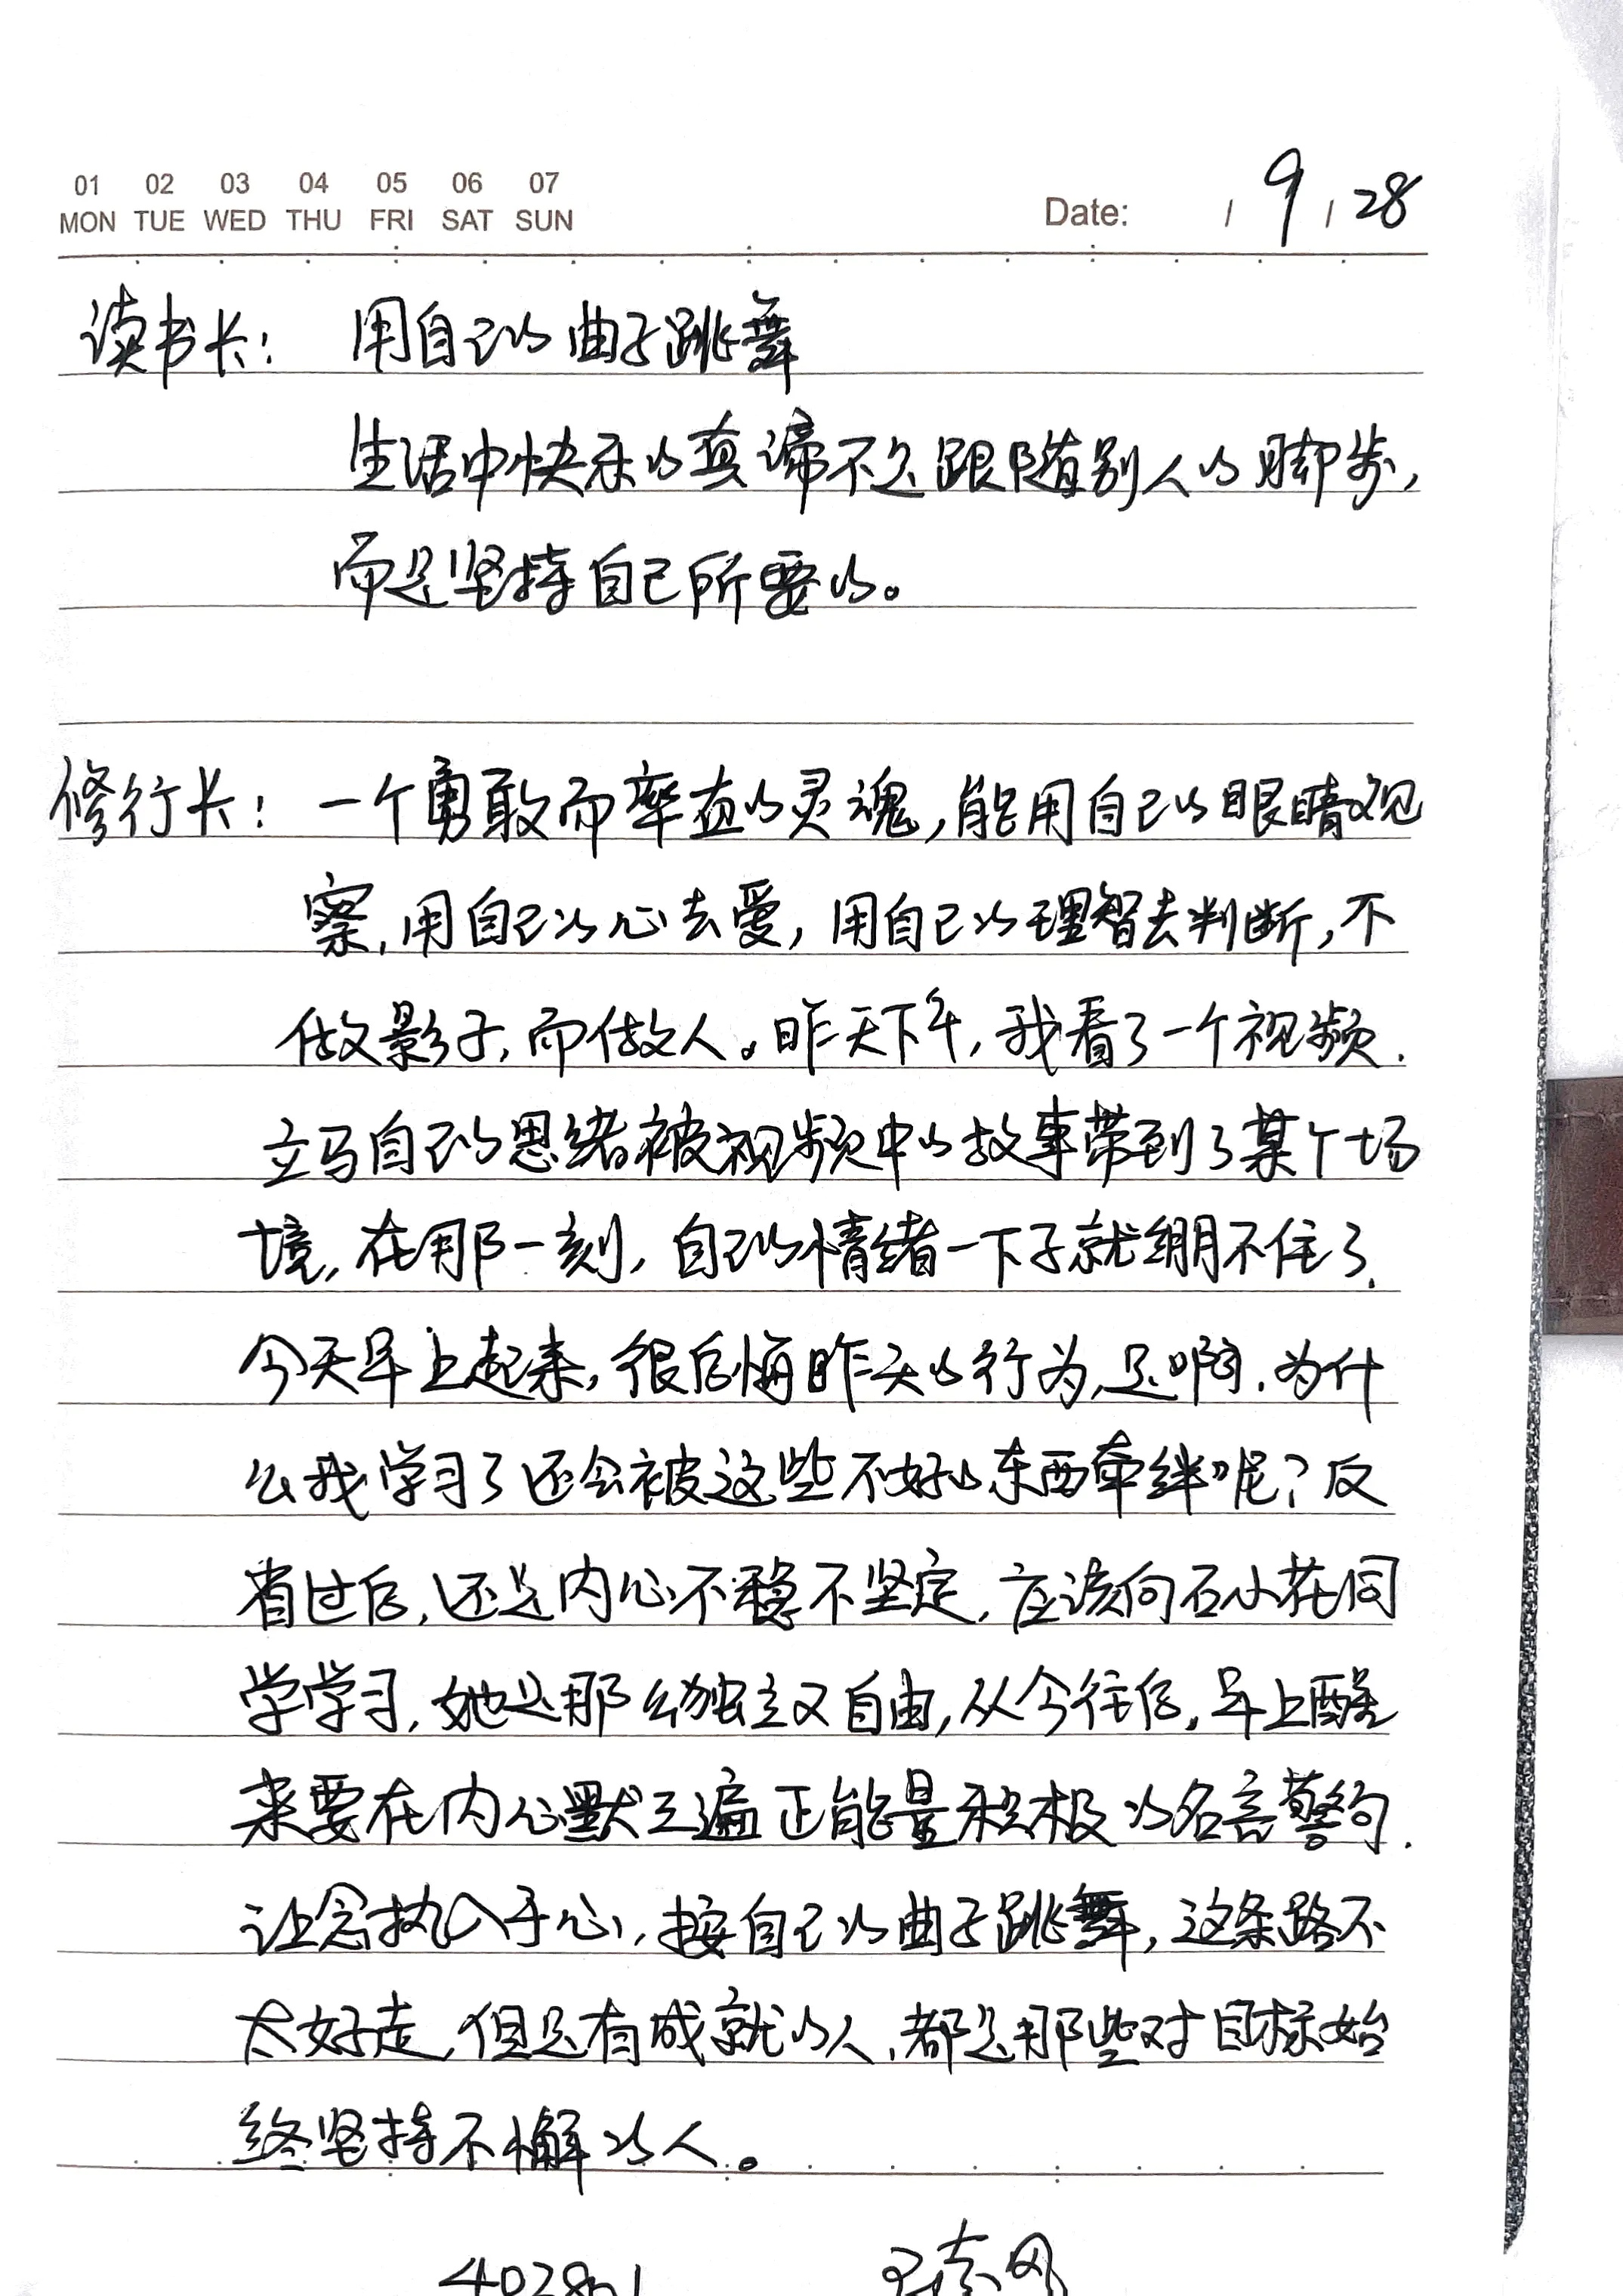 01 02 03 04 05 06 07
MON TUE WED THU FRI SAT SUN
Date: / 9 / 28
读书长: 用自己的曲子跳舞
生活中快乐的真谛不是跟随别人的脚步,
而是坚持自己所要的。
修行长: 一个勇敢而率直的灵魂,能用自己的眼睛观
察,用自己的心去爱,用自己的理智去判断,不
做影子,而做人。昨天下午,我看了一个视频.
立马自己的思绪被视频中的故事带到了某个场
境,在那一刻,自己的情绪一下子就绷不住了.
今天早上起来,很后悔昨天的行为,是啊.为什
么我学习了还会被这些不好的东西牵绊呢?反
省过后,还是内心不稳不坚定,应该向石小花同
学学习,她是那么独立又自由,从今往后,早上醒
来要在内心默三遍正能量积极的名言警句.
让念执入于心,按自己的曲子跳舞,这条路不
太好走,但是有成就的人,都是那些对目标始
终坚持不懈的人。